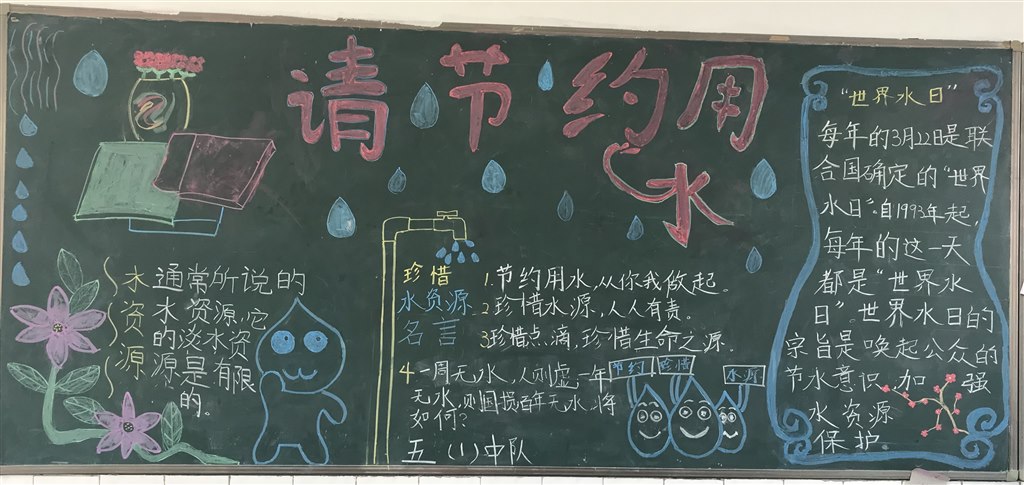 请节约用水
水资源
通常所说的
水资源,它
的淡水资
源是有限
的。
珍惜
水资源
名言
1.节约用水,从你我做起。
2珍惜水源,人人有责。
3珍惜点滴,珍惜生命之源。
4一周无水,人则虚一年
无水,则国损百年无水将
如何?
五(1)中队
节约
珍惜
水源
“世界水日”
每年的3月22日是联
合国确定的“世界
水日”。自1993年起,
每年的这一天
都是“世界水
日”。世界水日的
宗旨是唤起公众的
节水意识,加强
水资源
保护。